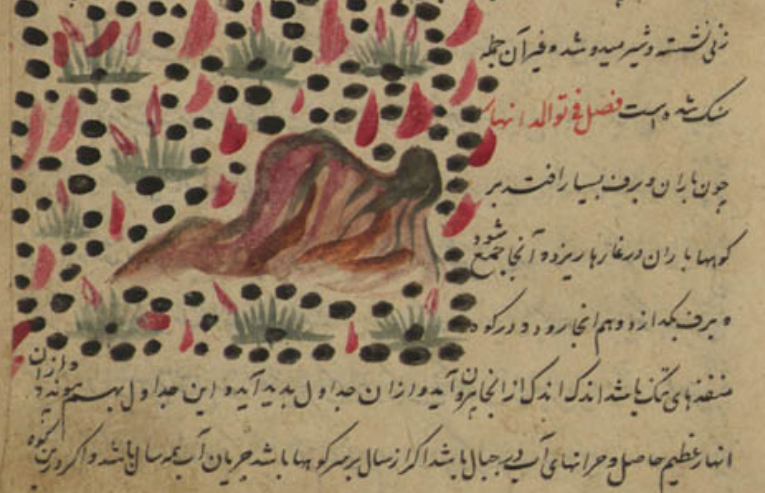 زنی نشسته و شیر میدوشد و غیر آن جمله
سنک شده است فصل فی توالد انهار
چون باران و برف بسیار افتد بر
کوهها باران در غارها ریزد و آنجا جمع شود
و برف بکدازد و هم انجا رود و در کوه
منفذهای تنک باشد اندک اندک از انجا بیرون آید و از ان جداول بدید آید و این جداول بهم پیوندد و از ان
انهار عظیم حاصل و خزانهای آب در جبال باشد اکر از سال بر سر کوهها باشد جریان آب همه سال باشد و اکر در کوه